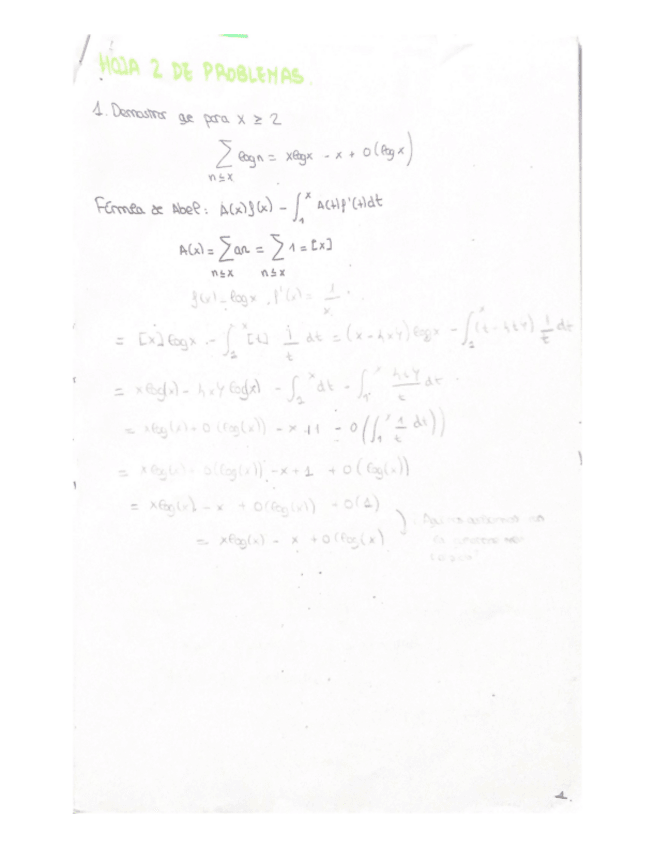 HOJA 2 DE PROBLEMAS.
1. Demostrar qe para x ≥ 2
∑ logn = xlogx - x + O(logx)
n≤x
Fórmula de Abel: A(x)f(x) - ∫₁ˣ A(t)f'(t)dt
A(x) = ∑ an = ∑ 1 = [x]
n≤x n≤x
f(x) = logx, f'(x) = 1/x
= [x] logx - ∫₂ˣ [t] 1/t dt = (x - {x}) logx - ∫₂ˣ (t - {t}) 1/t dt
= xlog(x) - {x} log(x) - ∫₂ˣ dt - ∫₁ˣ {t}/t dt
= xlog(x) + O(log(x)) - x + 1 - O(∫₁ˣ 1/t dt)
= xlog(x) - O(log(x)) - x + 1 + O(log(x))
= xlog(x) - x + O(log(x)) + O(1)
= xlog(x) - x + O(log(x)
1.